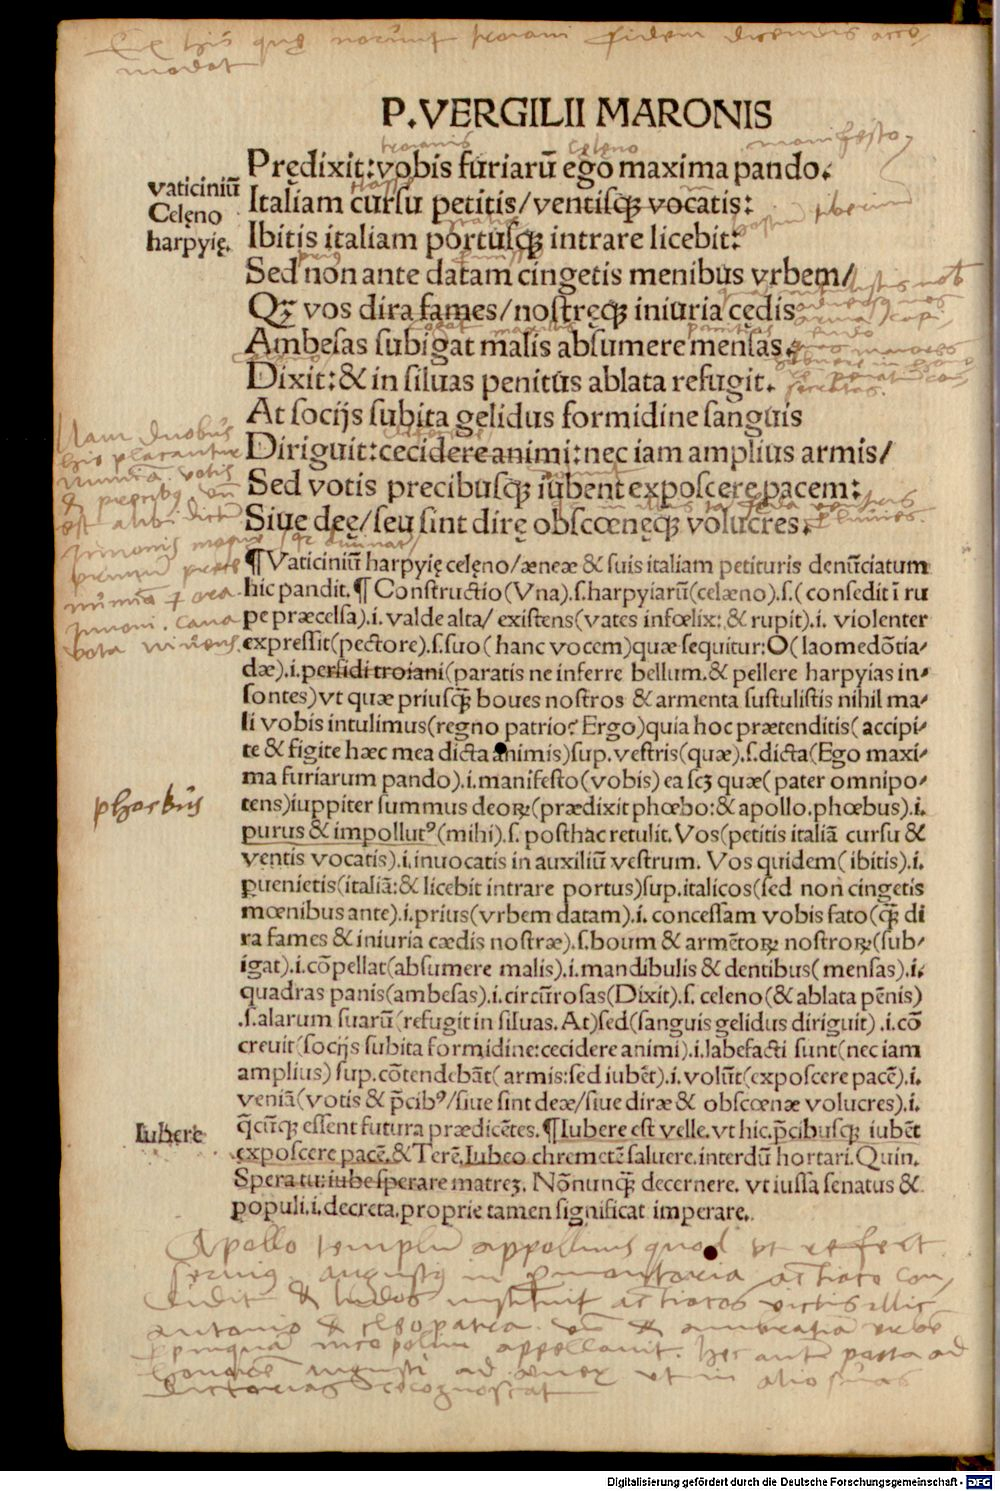 Ex his quę norunt troiani fidem dicendis acco
modat
P. VERGILII MARONIS
troianis Celęno manifesto
Prędixit: vobis furiarū ego maxima pando.
vaticiniū
Celęno
harpyię.
Italiam cursu petitis/ventisqꝫ vocatis:
Ibitis italiam portusqꝫ intrare licebit:
Sed non ante datam cingetis menibus vrbem/
Qꝫ vos dira fames/nostręqꝫ iniuria cędis
Ambesas subigat malis absumere mensas.
Dixit: & in siluas penitus ablata refugit.
At socijs subita gelidus formidine sanguis
Diriguit: cecidere animi: nec iam amplius armis/
Sed votis precibusqꝫ iubent exposcere pacem:
Siue dęę/seu sint dirę obscœnęqꝫ volucres.
Nam duobus
his placantur
numina votis
& precibus vn̄
est alibi dictū
Junonis magnę
primum prece
numē
Junoni cane
vota
¶ Vaticiniū harpyię celęno/æneæ & suis italiam petituris denūciatum
hic pandit. ¶ Constructio (Vna).s.harpyiarū(celæno).s.(consedit ī ru
pe præcelsa).i. valde alta/ existens(vates infœlix: & rupit).i. violenter
expressit(pectore).s.suo(hanc vocem)quæ sequitur: O(laomedōtia/
dæ).i.perfidi troiani(paratis ne inferre bellum. & pellere harpyias in/
sontes)vt quæ priusqꝫ boues nostros & armenta sustulistis nihil ma/
li vobis intulimus(regno patrio? Ergo)quia hoc prætenditis(accipi/
te & figite hæc mea dicta animis)sup. vestris(quæ).s.dicta(Ego maxi/
ma furiarum pando).i.manifesto(vobis) ea scꝫ quæ(pater omnipo/
phoebus
tens)iuppiter summus deoꝝ(prædixit phœbo: & apollo.phœbus).i.
purus & impollutꝰ(mihi).s. posthac retulit. Vos(petitis italiā cursu &
ventis vocatis).i.inuocatis in auxiliū vestrum. Vos quidem(ibitis).i.
ꝑuenietis(italiā: & licebit intrare portus)sup.italicos(sed non cingetis
mœnibus ante).i.prius(vrbem datam).i. concessam vobis fato(qꝫ di
ra fames & iniuria cædis nostræ).s.boum & armētoꝝ nostroꝝ(sub/
igat).i.cōpellat(absumere malis).i.mandibulis & dentibus(mensas).i.
quadras panis(ambesas).i.circūrosas(Dixit).s. celeno(& ablata pēnis)
.s.alarum suarū(refugit in siluas. At)sed(sanguis gelidus diriguit) .i.cō
creuit(socijs subita formidine: cecidere animi).i.labefacti sunt(nec iam
amplius) sup.cōtendebāt(armis: sed iubēt).i.volūt(exposcere pacē).i.
veniā(votis & p̄cibꝰ/siue sint deæ/siue diræ & obscœnæ volucres).i.
Iubere
q̄cūqꝫ essent futura prædicētes. ¶Iubere est velle. vt hic. p̄cibusqꝫ iubēt
exposcere pacē. & Terē. Iubeo chremetē saluere. interdū hortari. Quin.
Spera tu: iube sperare matreꝫ. Nōnunqꝫ decernere. vt iussa senatus &
populi.i.decreta. proprie tamen significat imperare.
Apollo templū appollinis quod vt refert
seruius augustꝰ in ꝓmontorio actiaco con
didit & ludos instituit actiacos victis illic
antonio & cleopatra. vn̄ & ambratiā vrbē
ꝓpinquā nicopolim appellauit. hec autē porta ad
honorē augusti ad æneę vt in alio suas
victorias recognoscat
Digitalisierung gefördert durch die Deutsche Forschungsgemeinschaft - DFG